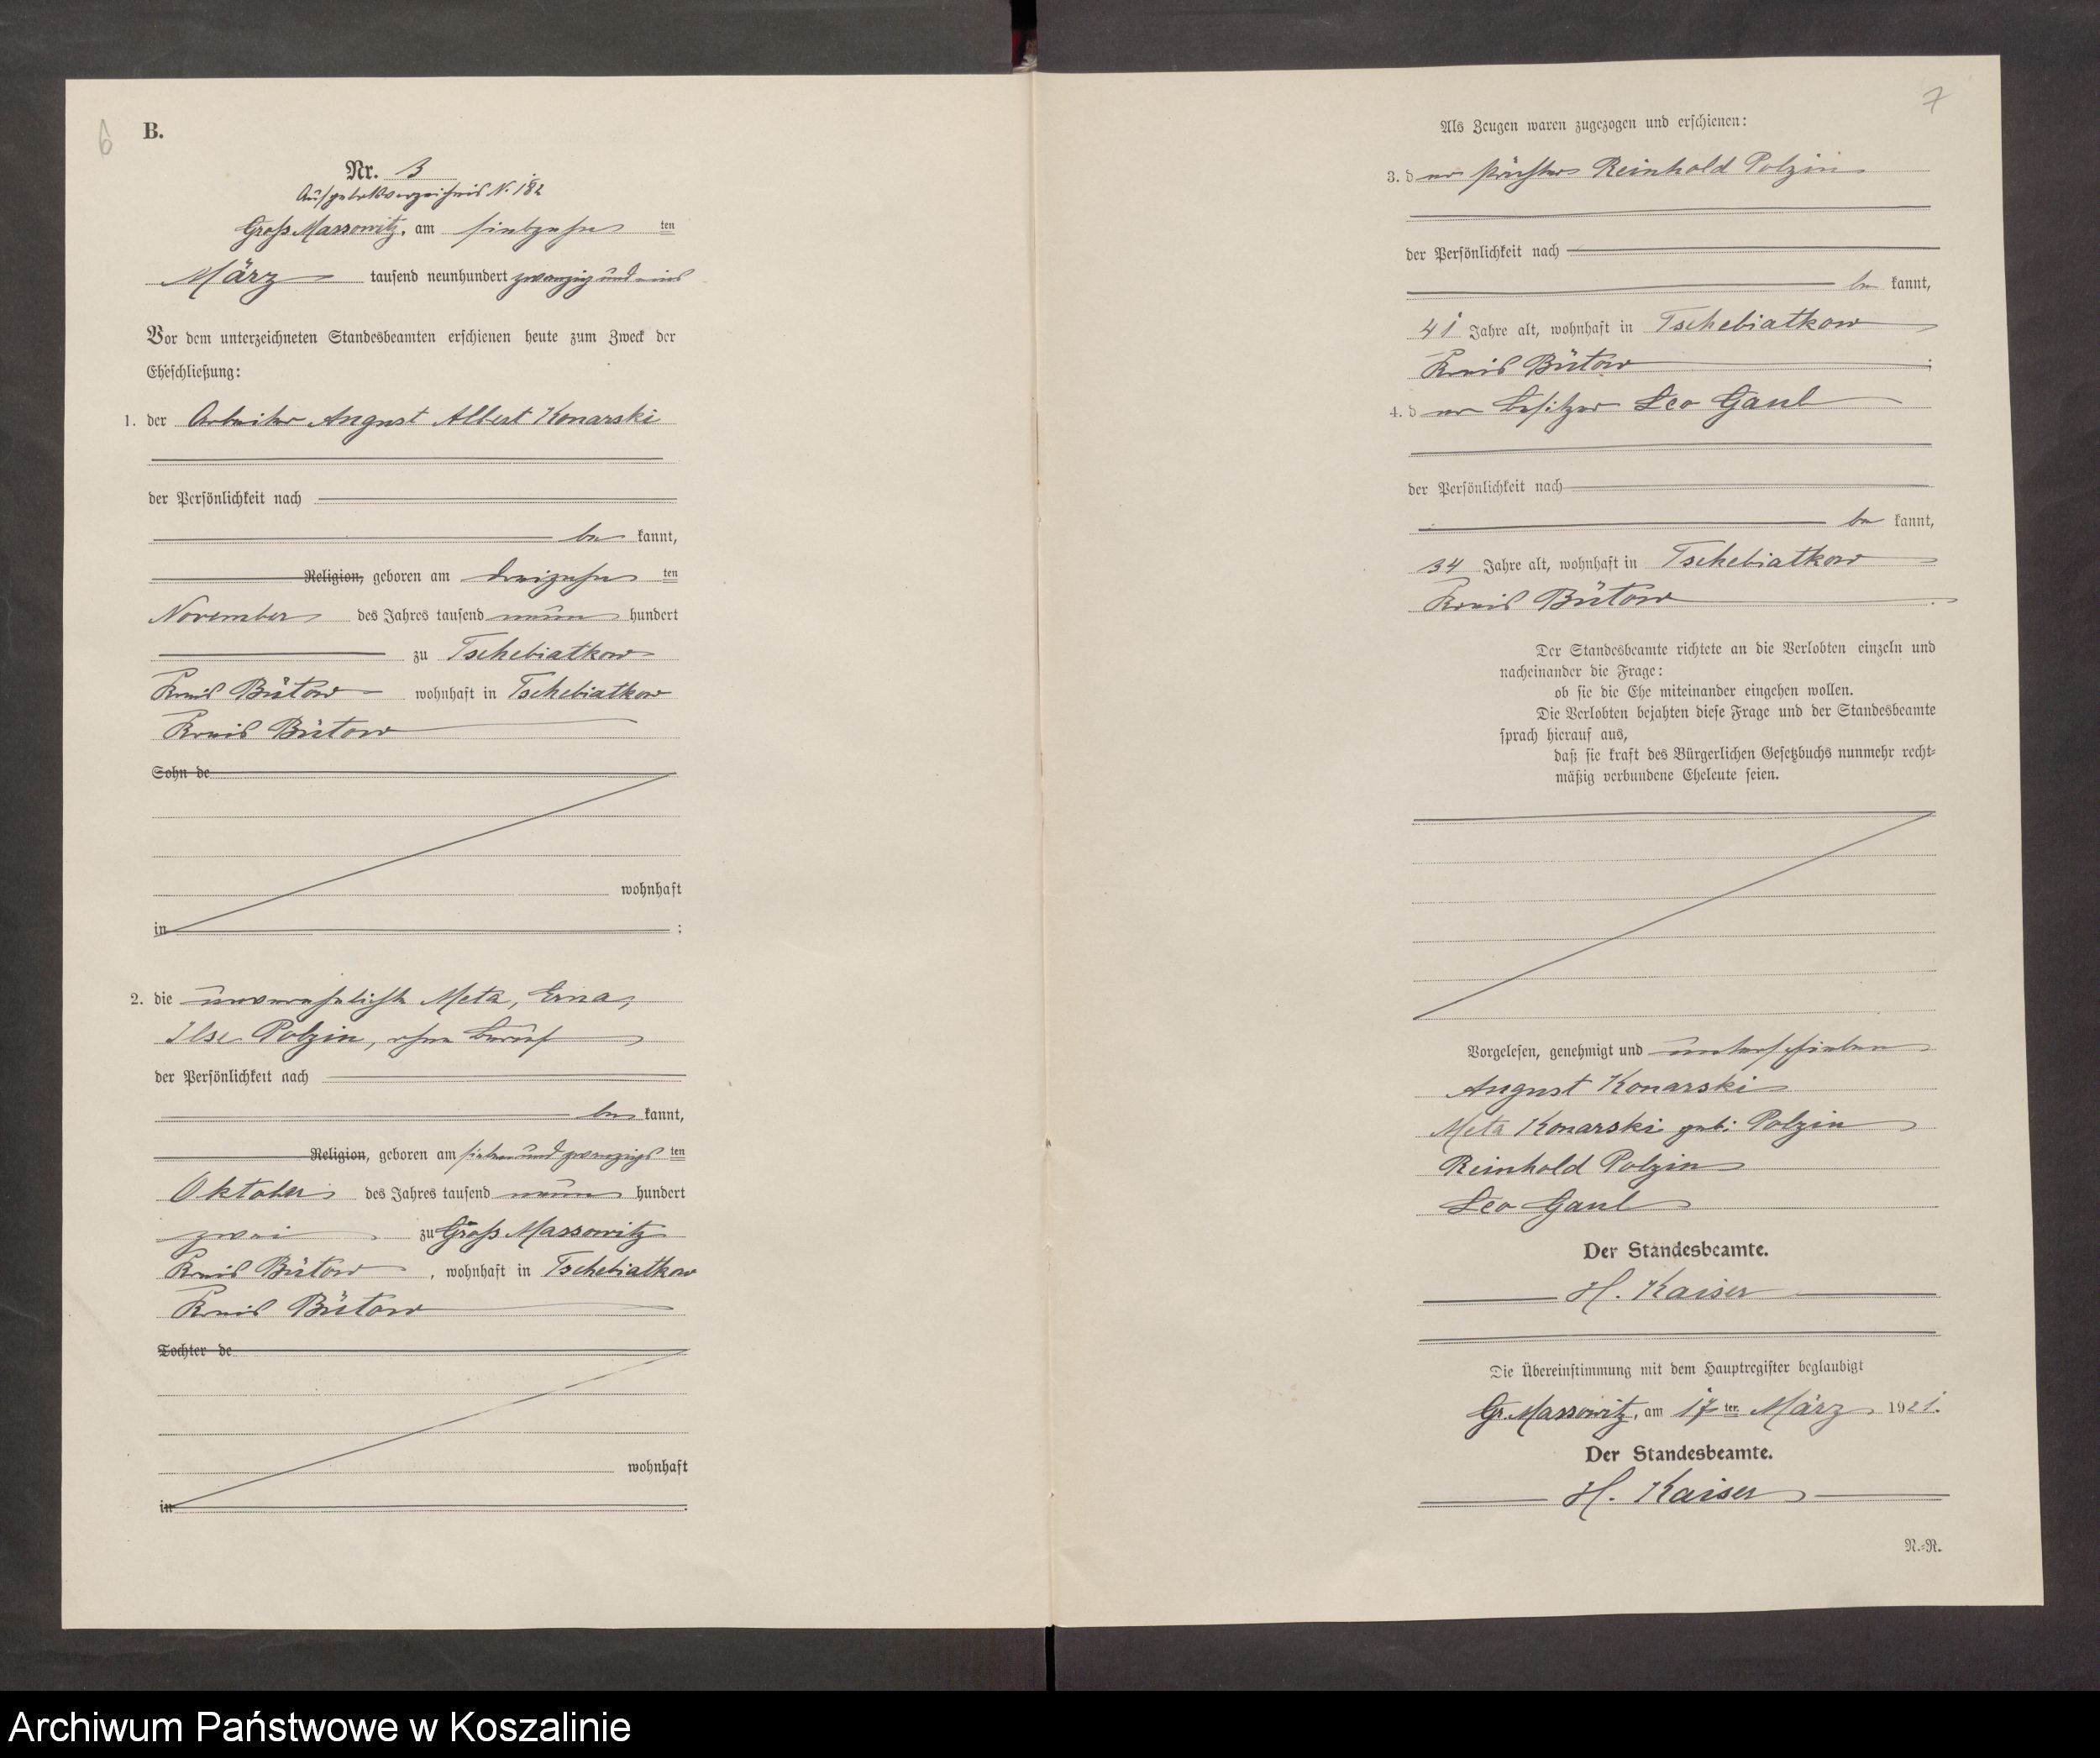 6
B.
Nr. 3
Aufgebotsverzeichnis N. 182
Groß Massowitz, am siebzehn ten
März tausend neunhundert zwanzig und eins
Vor dem unterzeichneten Standesbeamten erschienen heute zum Zweck der
Eheschließung:
1. der Arbeiter August Albert Konarski
der Persönlichkeit nach
be kannt,
Religion, geboren am dreizehn ten
November des Jahres tausend neun hundert
zu Tschebiatkow
Kreis Bütow wohnhaft in Tschebiatkow
Kreis Bütow
Sohn de
wohnhaft
in ;
2. die unverehelichte Meta, Erna,
Ilse Polzin, ohne Beruf
der Persönlichkeit nach
be kannt,
Religion, geboren am sieben und zwanzigs ten
Oktober des Jahres tausend neun hundert
zwei zu Groß Massowitz
Kreis Bütow, wohnhaft in Tschebiatkow
Kreis Bütow
Tochter de
wohnhaft
in .
7
Als Zeugen waren zugezogen und erschienen:
3. d er Reinhold Polzin
der Persönlichkeit nach
be kannt,
41 Jahre alt, wohnhaft in Tschebiatkow
Kreis Bütow ;
4. d er Besitzer Leo Gaul
der Persönlichkeit nach
be kannt,
34 Jahre alt, wohnhaft in Tschebiatkow
Kreis Bütow .
Der Standesbeamte richtete an die Verlobten einzeln und
nacheinander die Frage:
ob sie die Ehe miteinander eingehen wollen.
Die Verlobten bejahten diese Frage und der Standesbeamte
sprach hierauf aus,
daß sie kraft des Bürgerlichen Gesetzbuchs nunmehr recht-
mäßig verbundene Eheleute seien.
Vorgelesen, genehmigt und unterschrieben
August Konarski
Meta Konarski geb: Polzin
Reinhold Polzin
Leo Gaul
Der Standesbeamte.
H. Kaiser
Die Übereinstimmung mit dem Hauptregister beglaubigt
Gr. Massowitz, am 17 ten März 1921.
Der Standesbeamte.
H. Kaiser
N.-R.
Archiwum Państwowe w Koszalinie